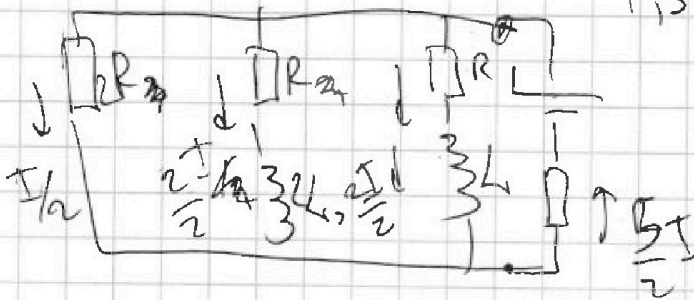 2R
R
R
I/2
2I/2
2L,
2I/2
L
5/2 I